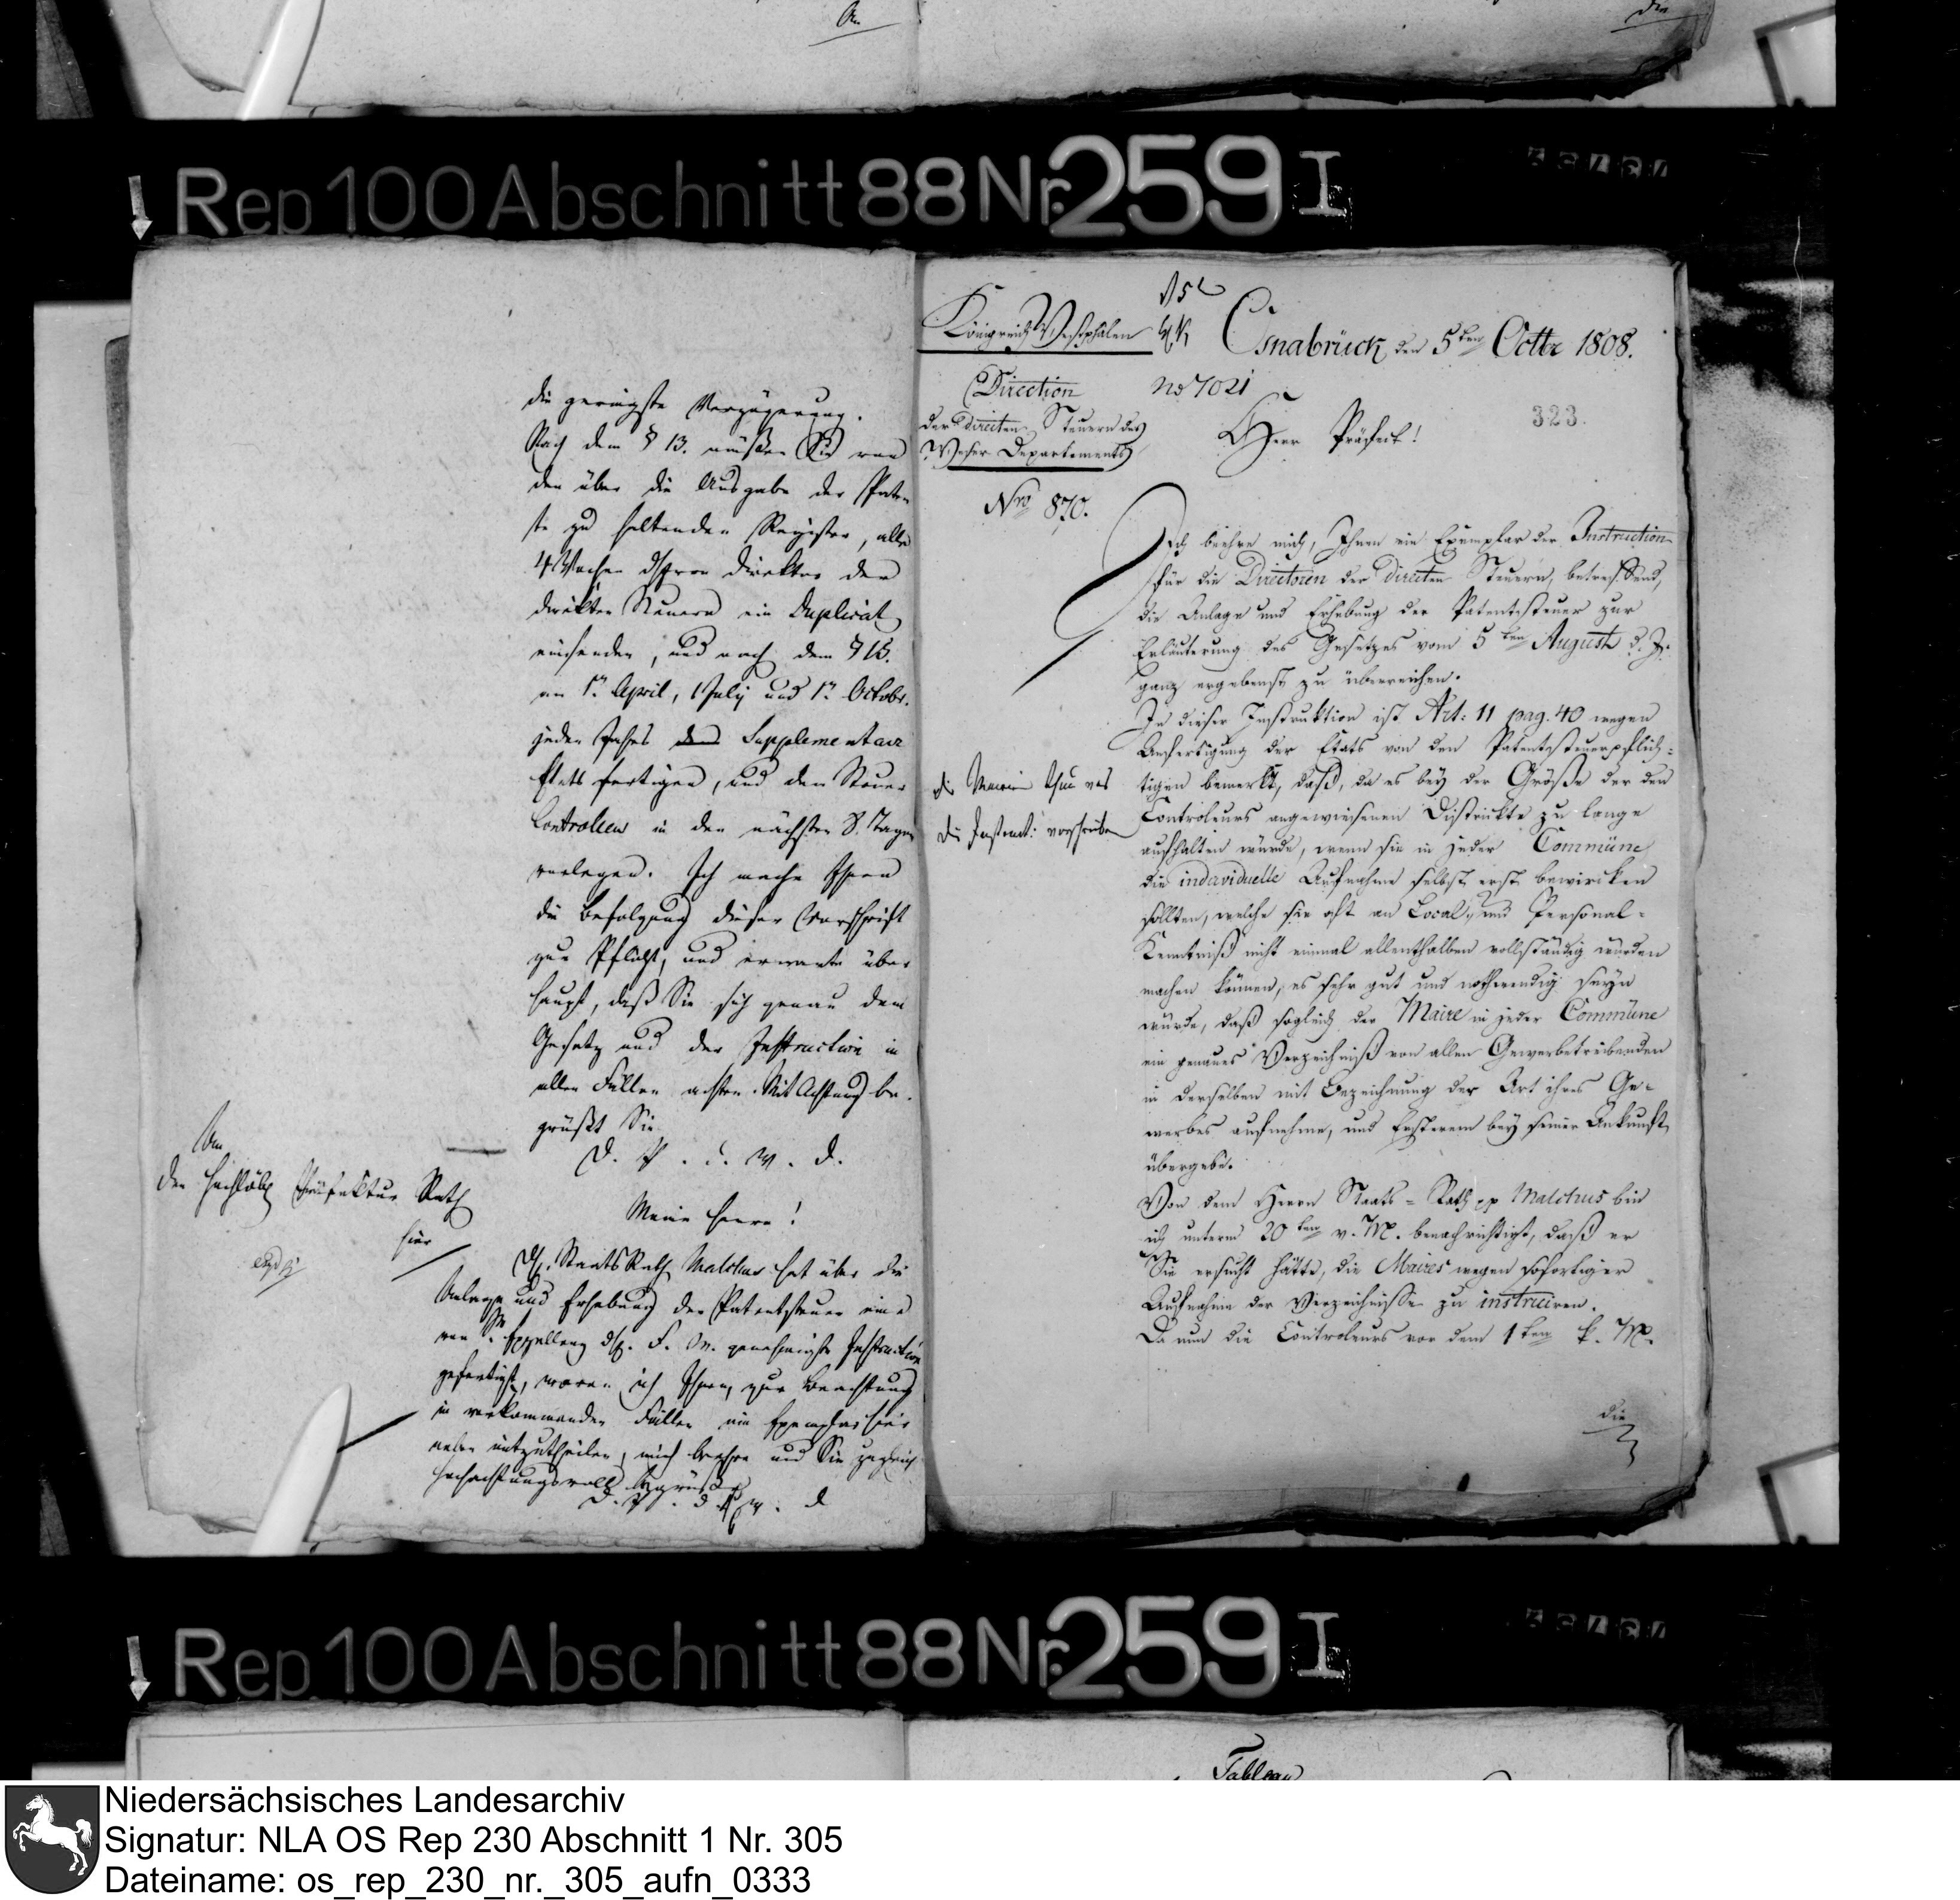 An
die
Rep 100 Abschnitt 88 Nr. 259 I
die geringste Verzögerung.
Nach dem § 13. müßen Sie von
den über die Ausgabe der Paten
te zu haltenden Register, alle
4 Wochen d Herrn Direktor der
direkten Steuern ein Duplicat
einsenden, und nach dem § 15.
am 1n April, 1 July und 1n Octobr.
jeden Jahres Supplementair
Etats fertigen, und dem Steuer
Controlleur in den nächsten 8. Tagen
vorlegen. Ich mache Ihnen
die Befolgung dieser Vorschrift
zur Pflicht, und erwarte über
haupt, daß Sie sich genau dem
Gesetz und der Instruction in
allen Fällen achten. Mit Achtung be
grüßt Sie
D. P. d. W. D.
An
den hochlöbl Präfektur Rath
hier
Meine Herrn!
StaatsRath Malchus hat über die
Anlage und Erhebung der Patentsteuer eine
von Sr Exzellenz d H. F. M. genehmigte Instruction
gefertigt, wovon ich Ihnen, zur Beachtung
in vorkommenden Fällen ein Exemplar hier
neben mitzutheilen, mich beehre und Sie zugleich
hochachtungsvoll begrüße
D. P. d. W. D
Königreich Westphalen
Osnabrück den 5ten Octbr 1808.
Direction
der directen Steuern des
Weser Departements
No 7021
323.
Herr Präfect!
Nro 870.
Ich beehre mich, Ihnen ein Exemplar der Instruction
für die Directoren der directen Steuern, betreffend,
die Anlage und Erhebung der Patentsteuer zur
Erläuterung des Gesetzes vom 5ten August d. J.
ganz ergebenst zu überreichen.
In dieser Instruktion ist Art: 11 pag. 40 wegen
Anfertigung der Etats von den Patentsteuerpflich=
tigen bemerkt, daß, da es bey der Größe der den
Controleurs angewiesenen Distrikte zu lange
aufhalten würde, wenn sie in jeder Commüne
die individuelle Aufnahme selbst erst bewircken
sollten, welche sie oft an Local, und Personal=
Kenntniß nicht einmal allenthalben vollständig würden
machen können, es sehr gut und nothwendig seyn
würde, daß sogleich der Maire in jeder Commüne
ein genaues Verzeichniß von allen Gewerbetreibenden
in derselben mit Bezeichnung der Art ihres Ge=
werbes aufnehme, und Ersterem bey seiner Ankunft
übergebe.
die Mairien thun was
die Instruct: vorschreiben
Von dem Herrn Staats=Rath pp Malchus bin
ich unterm 20ten v. M. benachrichtigt, daß er
Sie ersucht hätte, die Maires wegen sofortiger
Aufnahme der Verzeichnisse zu instruiren.
Da nun die Controleurs vor dem 1ten k. M.
die
Rep 100 Abschnitt 88 Nr. 259 I
Tableau
Niedersächsisches Landesarchiv
Signatur: NLA OS Rep 230 Abschnitt 1 Nr. 305
Dateiname: os_rep_230_nr._305_aufn_0333